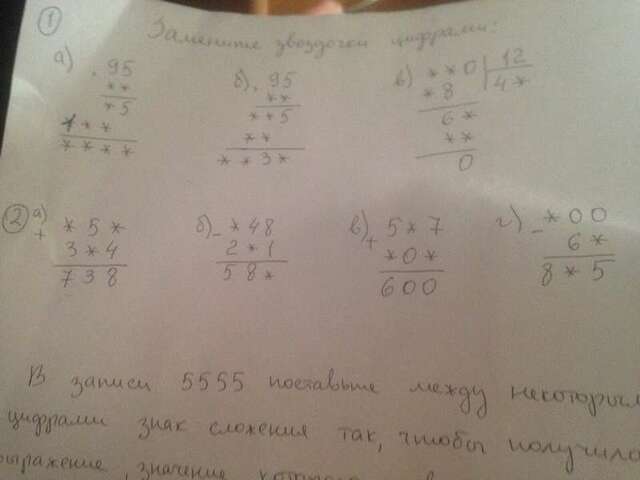 ① Замените звёздочки цифрами:
а) . 95
**
*5
***
****
б) . 95
**
**5
**
**3*
в) **0 | 12
*8 4*
6*
**
0
② а) + *5*
3*4
738
б) - *48
2*1
58*
в) + 5*7
*0*
600
г) - *00
6*
8*5
В записи 5555 поставьте между
цифрами знак сложения так, чтобы
выражение, значение